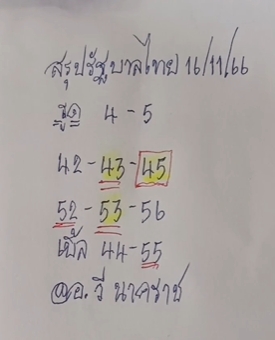 สรุปรัฐบาลไทย 16/11/66
รูด 4-5
42-43-45
52-53-56
เบิ้ล 44-55
อ. วี นาคราช